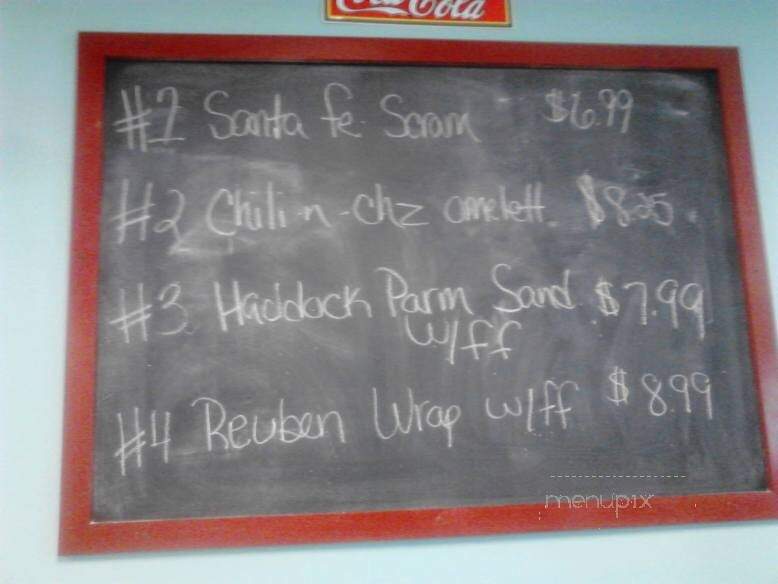 Coca Cola
#1 Santa fe Scram $6.99
#2 Chili-n-chz omelett $8.25
#3 Haddock Parm Sand $7.99
w/ff
#4 Reuben Wrap w/ff $8.99
menupix